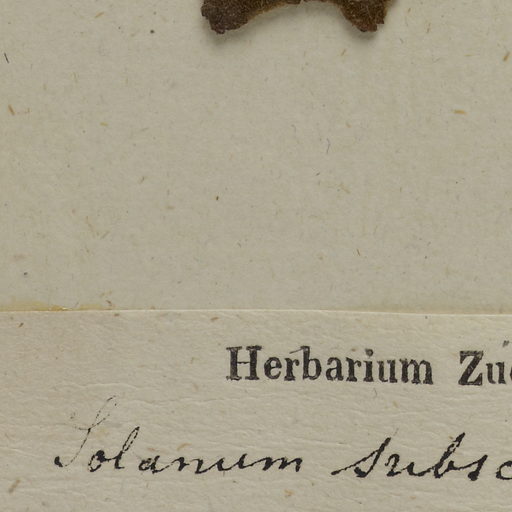 Herbarium Zu
Solanum subsc